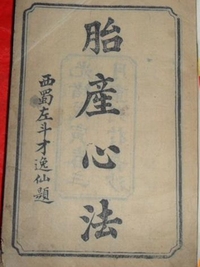 胎產心法
西蜀左斗才逸仙題